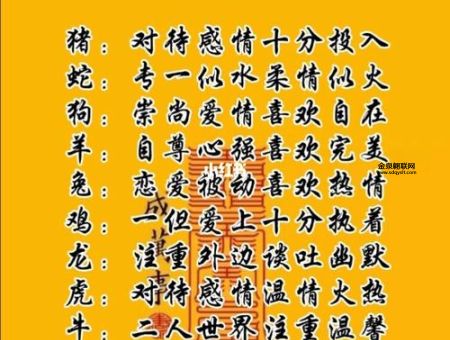 猪：对待感情十分投入
蛇：专一似水柔情似火
狗：崇尚爱情喜欢自在
羊：自尊心强喜欢完美
兔：恋爱被动喜欢热情
鸡：一但爱上十分执着
龙：注重外边谈吐幽默
虎：对待感情温情火热
牛：二人世界注重温馨
小红书
金泉翻联网
www.sdqyslt.com